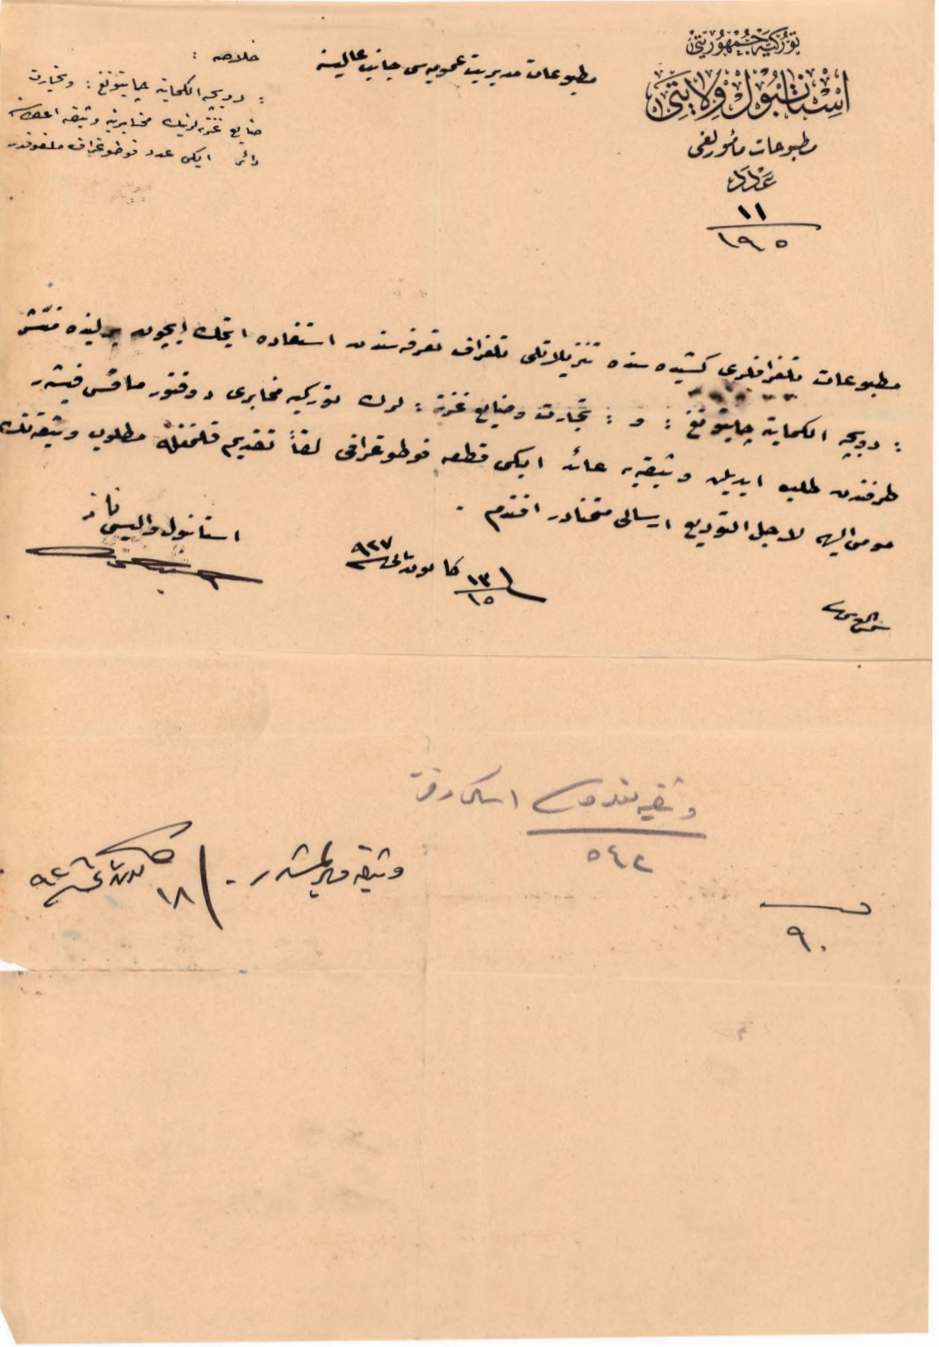 توركيه جمهوريتى
استانبول ولايتى
مطبوعات مأمورلغى
عدد
١١
١٩٥
مطبوعات مديريت عموميه سى جانب عاليسنه
خلاصه :
: دويچه الكماينه چايتونغ : و تجارت
صنايع غزته لرينك مخابرينه وثيقه اعطاسنه
دائر ايكى عدد فوطوغراف ملفوفدر
مطبوعات تلغرافلرى كشيده سنده تنزيلاتلى تلغراف تعرفه سندن استفاده ايتمك ايچون برلينده منتشر
: دويچه الكماينه چايتونغ : و : تجارت و صنايع غزته : لرك توركيه مخابرى دوقتور ماقس فيشر
طرفندن طلب ايديلن وثيقه يه عائد ايكى قطعه فوطوغرافى لفاً تقديم قلنمغله مطلوب وثيقه نك
مومى اليه لاجل التوديع ارسالى متمنادر افندم .
١٣ كانون ثانى ٩٢٧
١٥
استانبول واليسى نامنه
وثيقه نومروسى اسكى دفتر
٥٤٢
وثيقه ويرلمشدر .
١٨ كانون ثانى ٩٢٦
٩٠